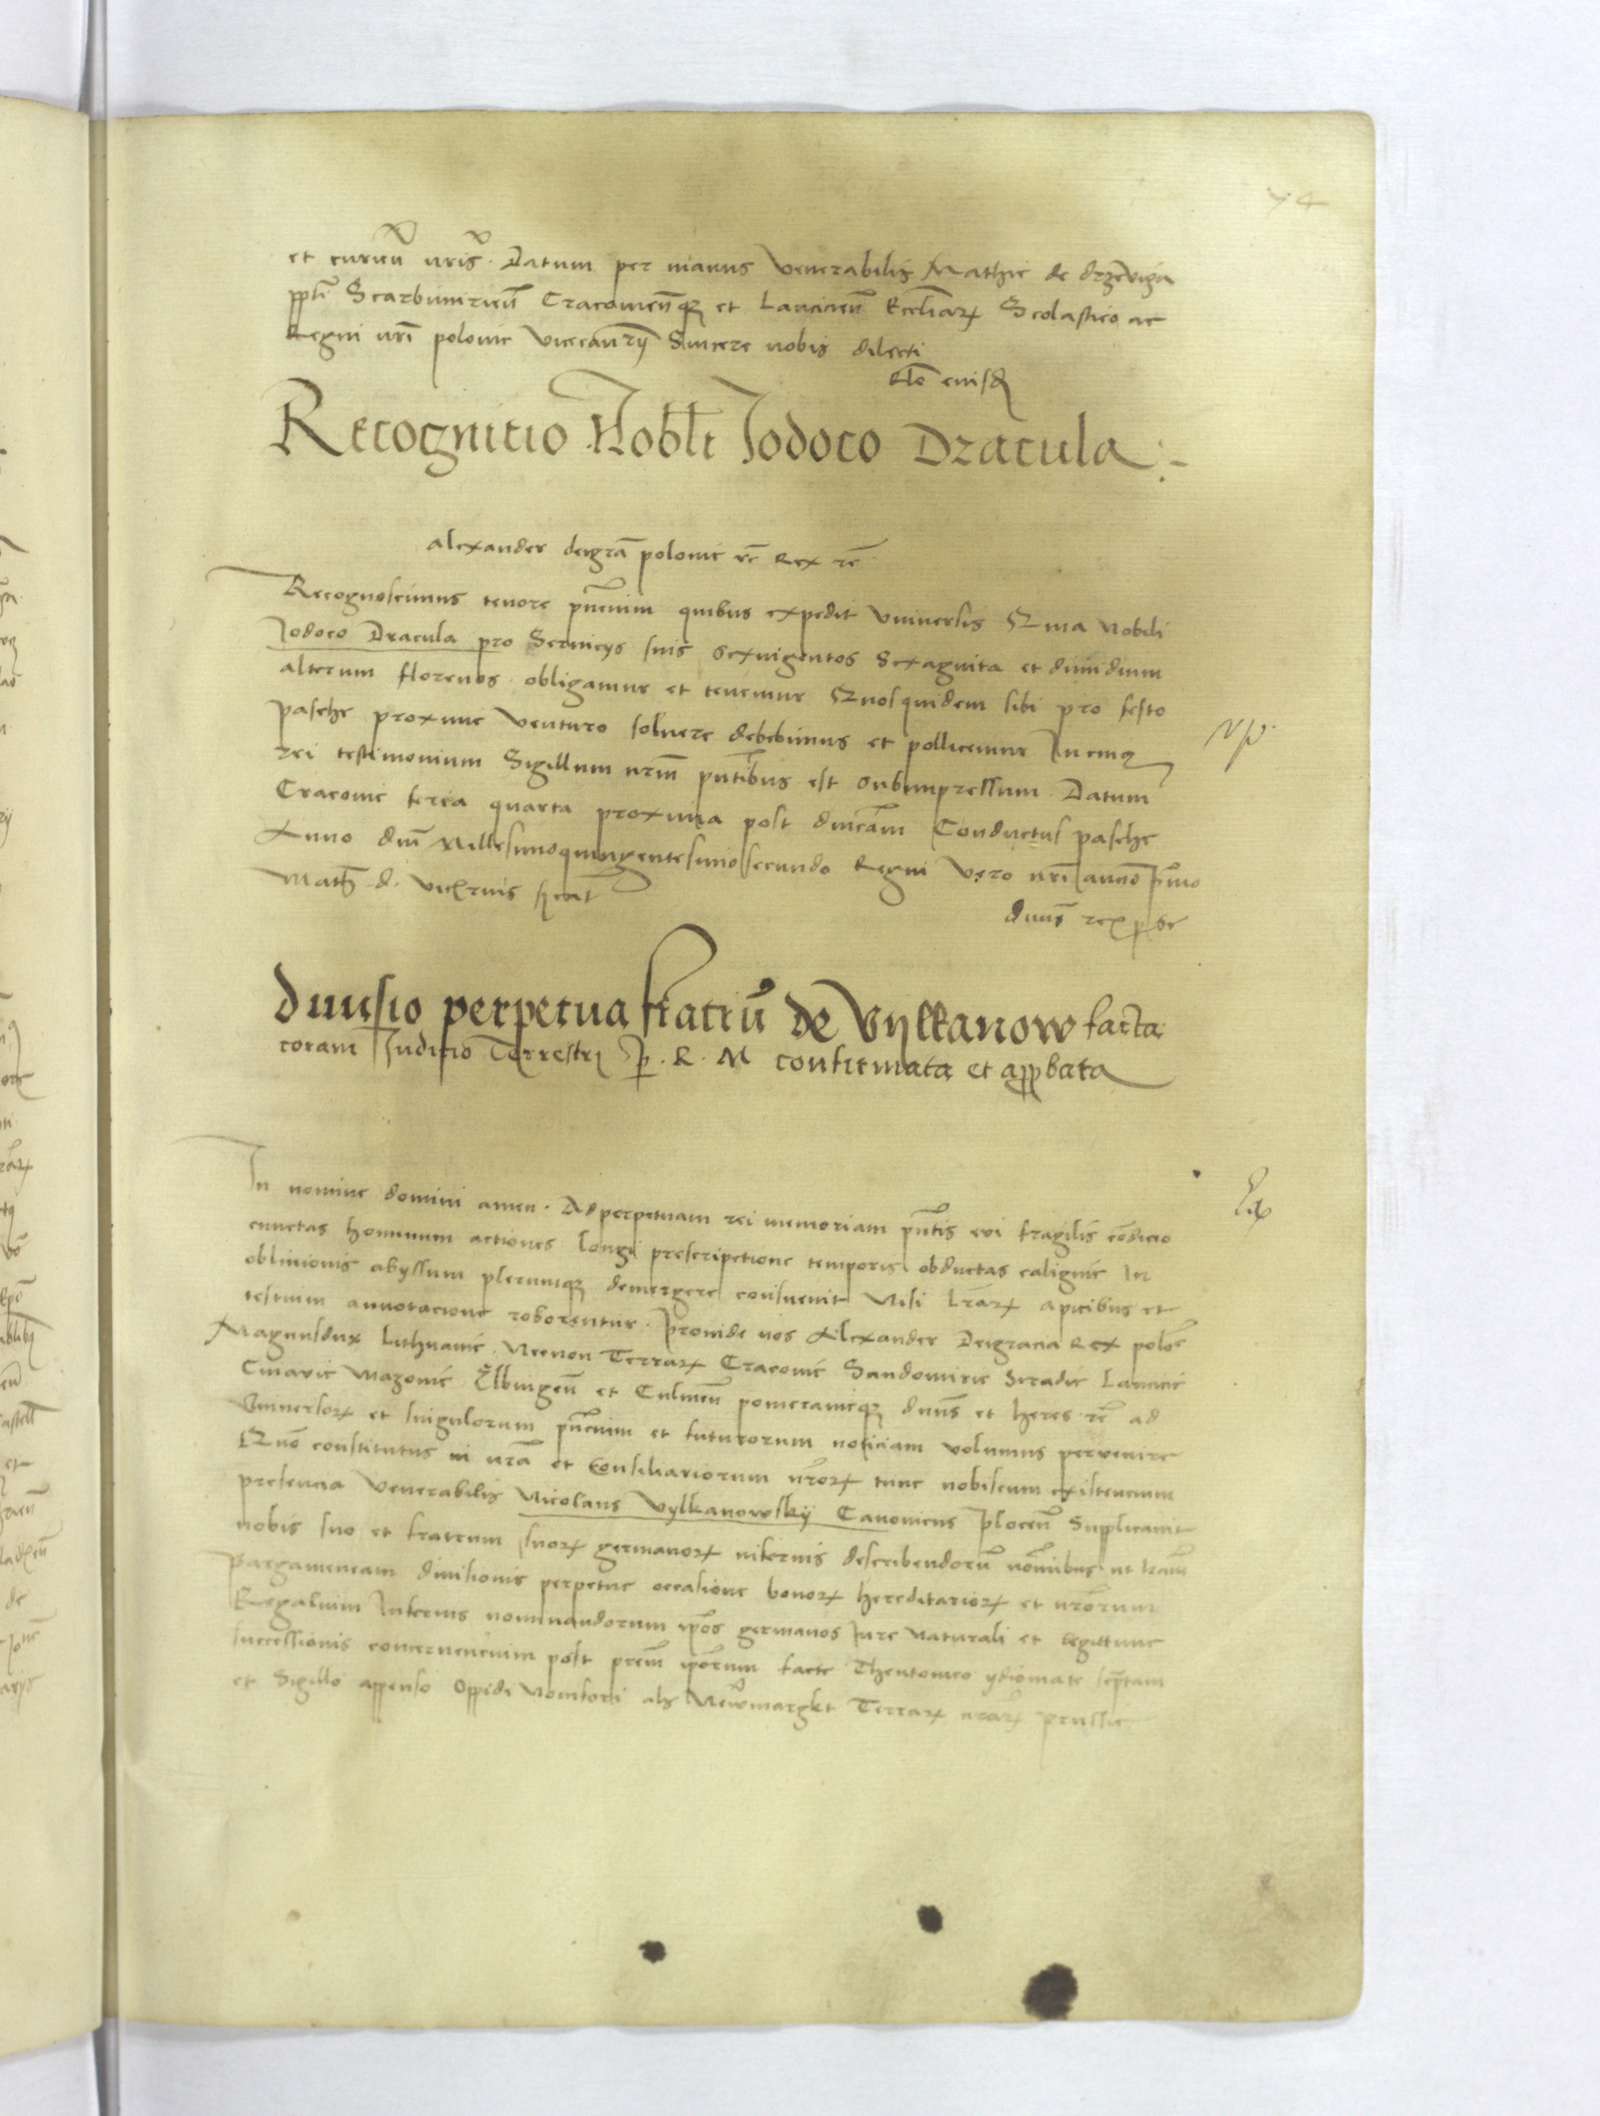 74
et curien̄ nris̄. Datum per manus Venerabilis Mathie de drzewicza
pptī Scarbimirien̄ Cracouien̄qꝫ et Lancicien̄ Eccliarꝝ Scolastico ac
Regni nrī polonie vicecancꝝij Sincere nobis dilecti
Rlo eiusdē
Recognitio Nobli Jodoco Dracula
alexander deigrā polonie rē Rex rē
Recognoscimus tenore pn̄cium quibus expedit vniuersis Quia Nobili
Jodoco Dracula pro Seruicys suis sexingentos Sexaginta et dimidium
alterum florenos obligamur et tenemur Quosquidem sibi pro festo
pasche proxime venturo soluere debebimus et pollicemur In cuiꝯ
rei testimonium Sigillum nrm̄ pn̄tibus est Subimpressum. Datum
Cracouie feria quarta proxima post dn̄icam Conductus pasche
Anno dn̄i Millesimoquingentesimosecundo Regni vero nrī anno pͥmo
Math d. vic sc̄at
Dnūs rex p se
Diuisio perpetua fratrū de Vijlkanow facta
coram Judicio Terrestri P. R. M confirmata et approbata
In nomine domini amen. Ad perpetuam rei memoriam pn̄tis eui fragilis cōdicio
cunctas hominum actiones longi prescripctione temporis obductas caliginē In
obliuionis abyssum plerumqꝫ demergere consueuit Nisi lrārꝝ apicibus et
testium annotacione roborentur. Prouide nos Alexander Deigracia Rex polōe
Magnusdux Lithuanie. Necnon Terrarꝝ Cracouie Sandomirie Siradie Lancicie
Cuiavie Mazouie Elbingen̄ et Culmen̄ pomeranieqꝫ dnūs et heres rē ad
Vniuersorꝝ et singulorum pn̄cium et futurorum noticiam volumus peruenire
Quō constitutus in nrā et Consiliariorum nrōrꝝ tunc nobiscum existencium
presencia venerabilis Nicolaus Vylkanowskij Canonicus plocen̄ Supplicauit
nobis suo et fratrum suorꝝ germanorꝝ infernis describendorū nōibus ut lrām
pargameneam diuisionis perpetue occasione bonorꝝ hereditariorꝝ et nrōrum
Regalium Inferius nominandorum ip̄os germanos Jure naturali et legittime
successionis concernencium post prem̄ ipōrum facte Theutonico ydiomate scp̄tam
et Sigillo appenso Oppidi Nouifori als Newmargkt Terrarꝝ nrārꝝ prussie